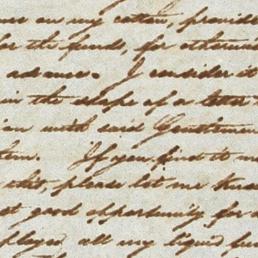 on my cotton, provide
for the funds, for otherwi
advance. I consider it
in the shape of a letter
an with said Gentlemen
tem. If you find to m
this, please let me know
st good opportunity for a
ployed all my liquid fun